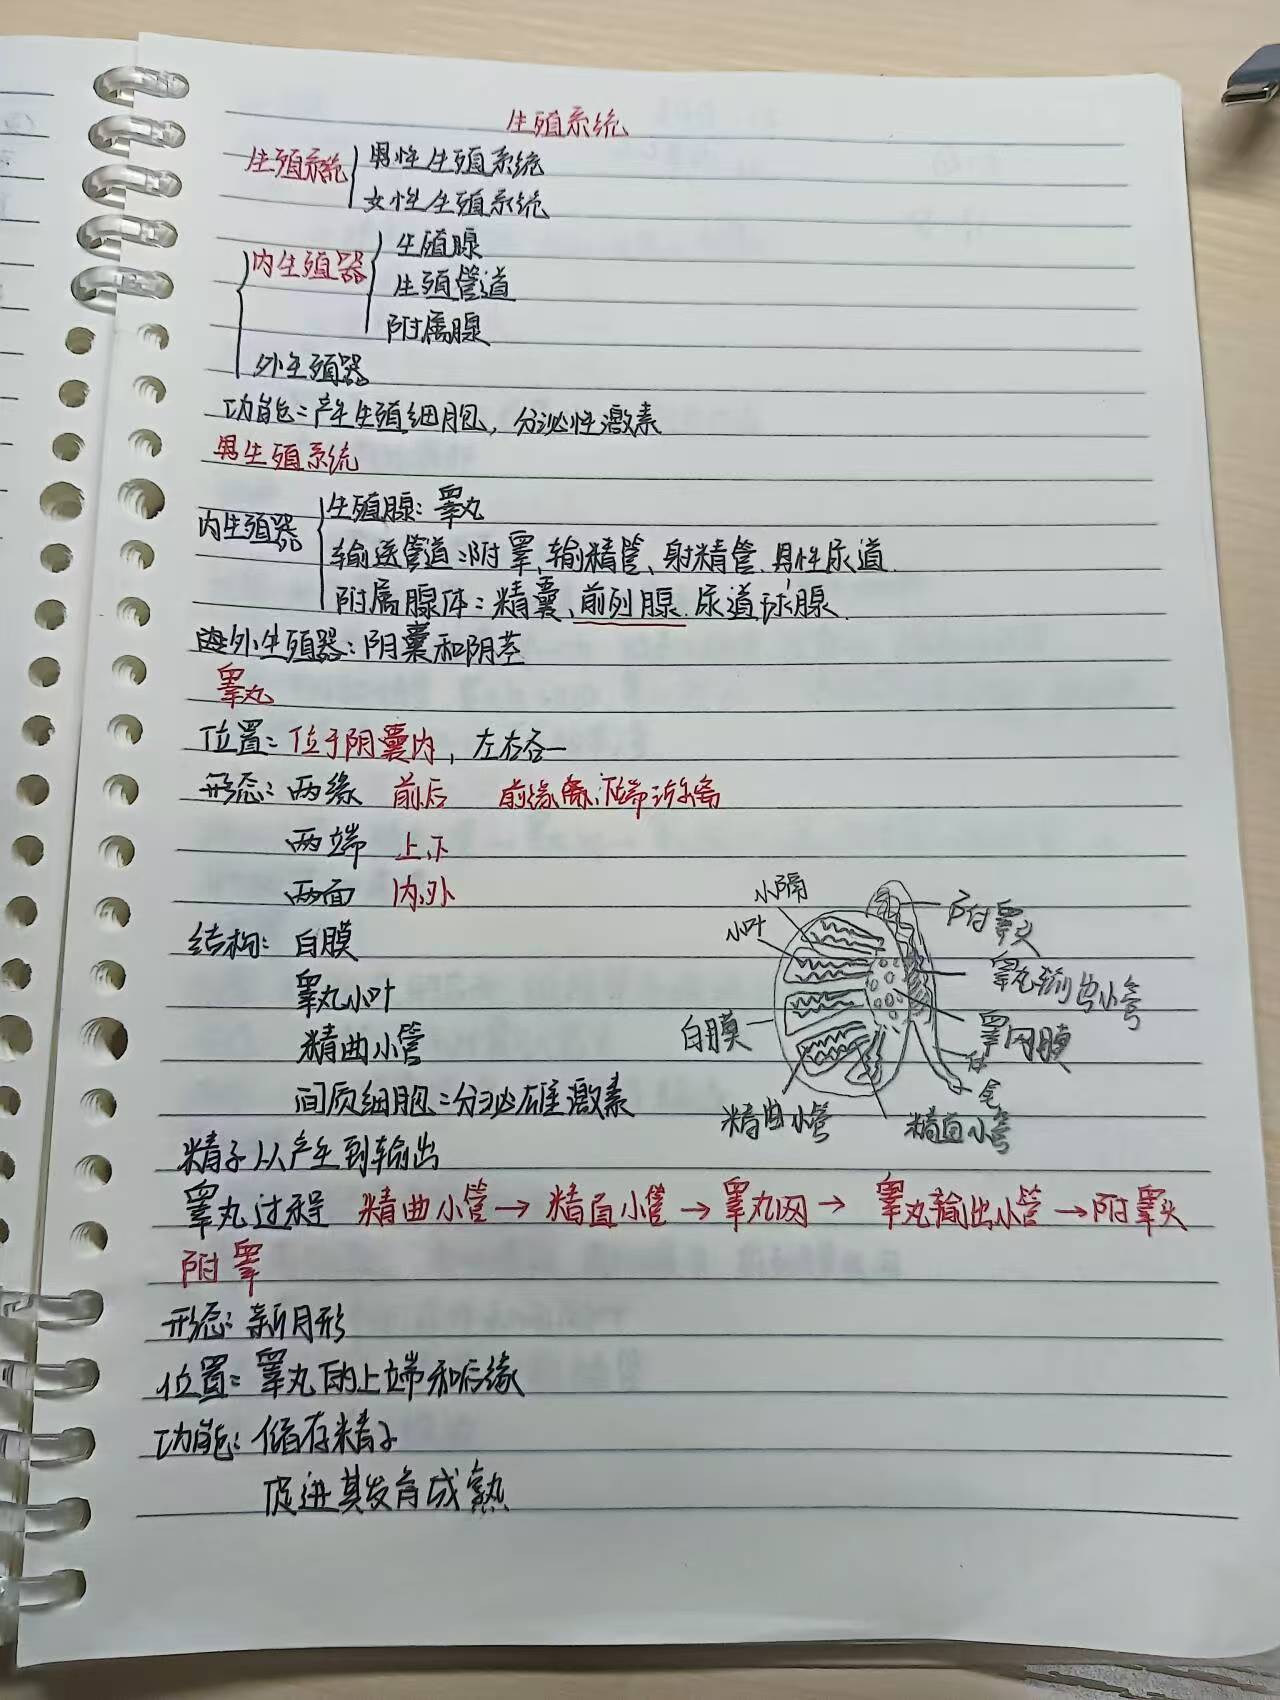 生殖系统
生殖系统 男性生殖系统
女性生殖系统
内生殖器 生殖腺
生殖管道
附属腺
外生殖器
功能:产生生殖细胞,分泌性激素
男生殖系统
内生殖器 生殖腺:睾丸
输送管道:附睾、输精管、射精管、男性尿道
附属腺体:精囊、前列腺、尿道球腺
外生殖器:阴囊和阴茎
睾丸
位置:位于阴囊内,左右各一
形态:两缘 前后 前缘 下端游离
两端 上下
两面 内外
结构:白膜
睾丸小叶
精曲小管
间质细胞:分泌雄激素
小隔
小叶
白膜
精曲小管
精直小管
附睾头
睾丸输出小管
睾网膜
体
尾
精子从产生到输出
睾丸过程 精曲小管→精直小管→睾丸网→睾丸输出小管→附睾头
附睾
形态:新月形
位置:睾丸的上端和后缘
功能:储存精子
促进其发育成熟